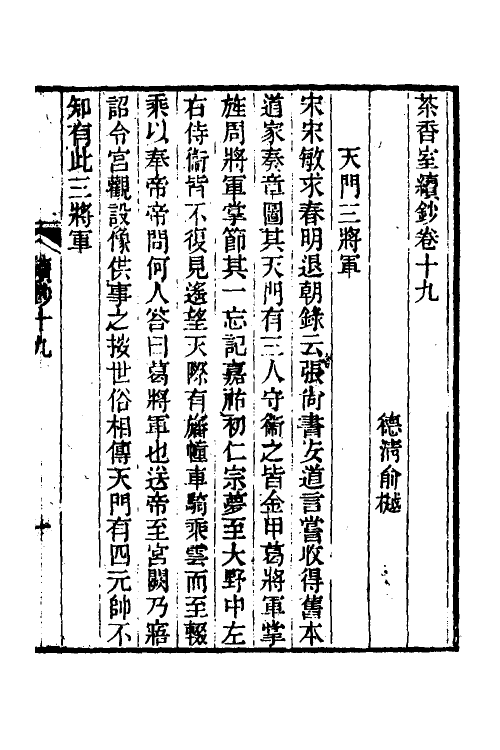 茶香室續鈔卷十九
德清俞樾
天門三將軍
宋宋敏求春明退朝錄云張尚書安道言嘗收得舊本
道家奏章圖其天門有三人守衞之皆金甲葛將軍掌
旌周將軍掌節其一忘記嘉祐初仁宗夢至大野中左
右侍衞皆不復見遙望天際有旛幢車騎乘雲而至輟
乘以奉帝帝問何人答曰葛將軍也送帝至宮闕乃寤
詔令宮觀設像供事之按世俗相傳天門有四元帥不
知有此三將軍
續鈔十九